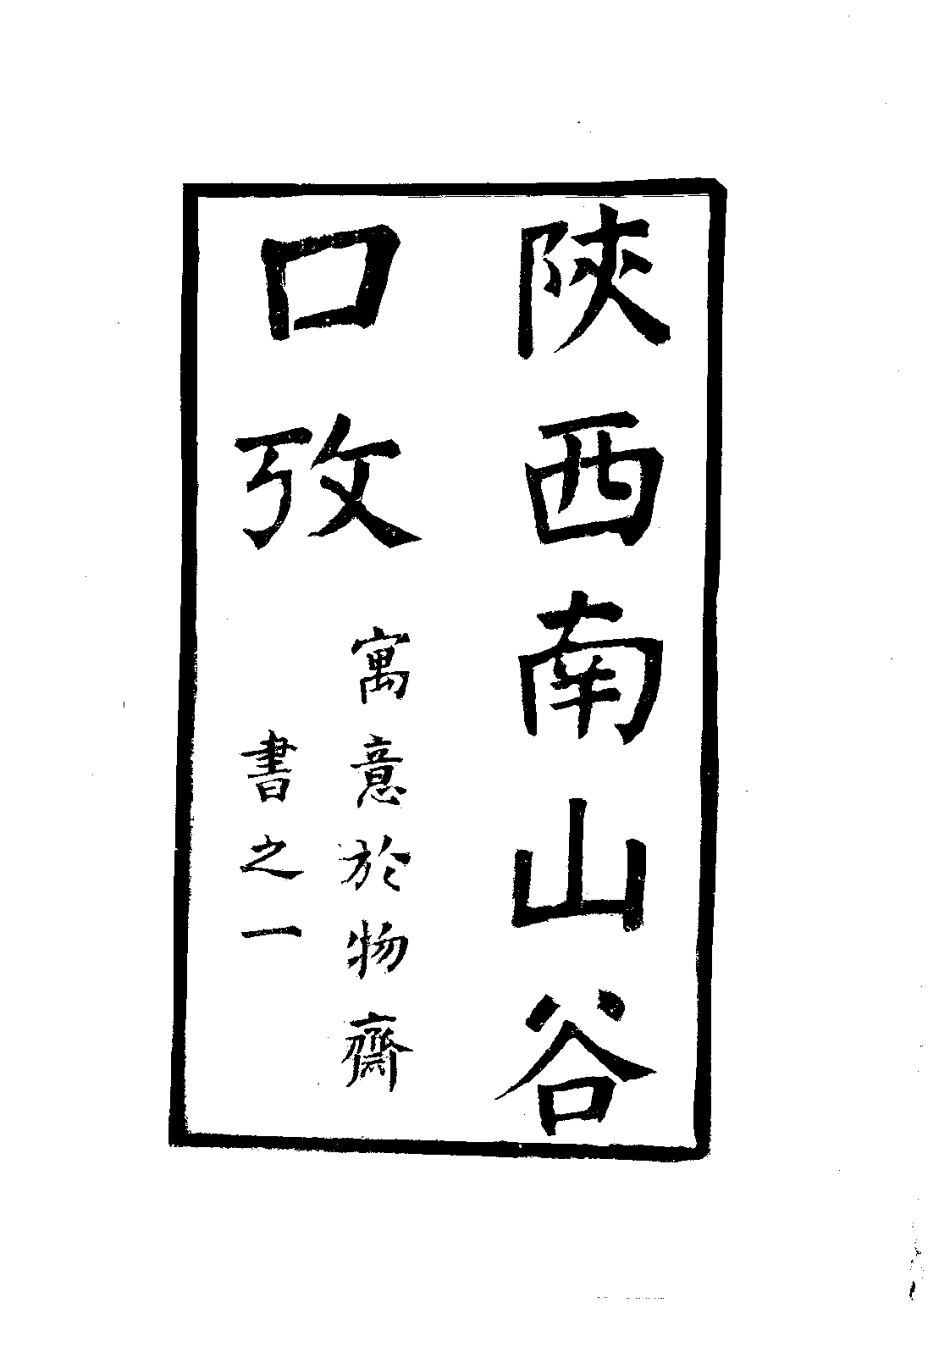 陝西南山谷
口攷
寓意於物齋
書之一